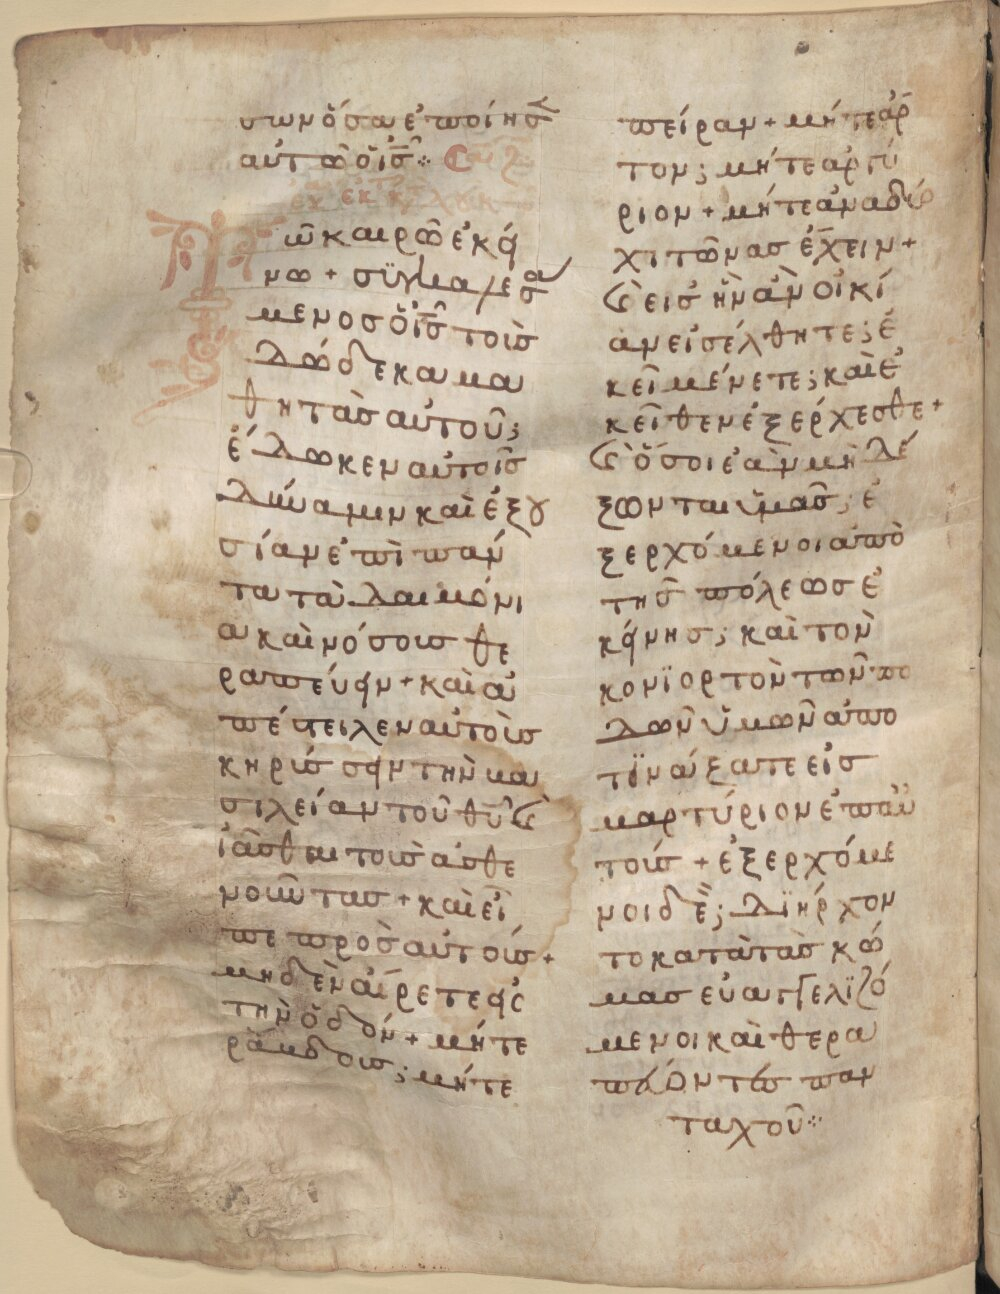 σων ὅσα ἐποίησ
αὐτῶ ὁ ἰς ⁘ Σαβ ζ
ἐκ κτ λουκ
Τῶ καιρῶ ἐκεί
νω + συγκαλεσα
μενος ὁ ἰς τοὺς
δώδεκα μα
θητὰς αὐτοῦ ;
ἔδωκεν αὐτοῖς
δύναμιν καὶ ἐξου
σίαν ἐπὶ πάν
τα τὰ δαιμόνι
α καὶ νόσους θε
ραπεύειν + καὶ ἀ
πέστειλεν αὐτοὺς
κηρύσσειν τὴν βα
σιλείαν τοῦ θυ ϗ
ἰᾶσθαι τοὺς ἀσθε
νοῦντας + καὶ εἶ
πε πρὸς αὐτούς +
μηδὲν αἴρετε εἰς
τὴν ὁδόν + μήτε
ράβδους ; μήτε
πείραν + μήτε ἄρ
τον ; μήτε ἀργύ
ριον + μήτε ἀνα δύο
χιτῶνας ἔχειν +
ϗ εἰς ἣν ἂν οἰκί
αν εἰσέλθητε ; ἐ
κεῖ μένετε ; καὶ ἐ
κεῖθεν ἐξέρχεσθε +
ϗ ὅσοι ἐὰν μὴ δέ
ξωνται ὑμᾶς ; ἐ
ξερχόμενοι ἀπὸ
τῆς πόλεως ἐ
κείνης ; καὶ τὸν
κονϊορτὸν τῶν πο
δῶν ὑμῶν ἀπο
τϊνάξατε εἰς
μαρτύριον ἐπ αὐ
τούς + ἐξερχόμε
νοι δὲ ; δϊήρχον
το κατὰ τὰς κώ
μας εὐαγγελϊζό
μενοι καὶ θερα
πεύοντες παν
ταχοῦ ⁘